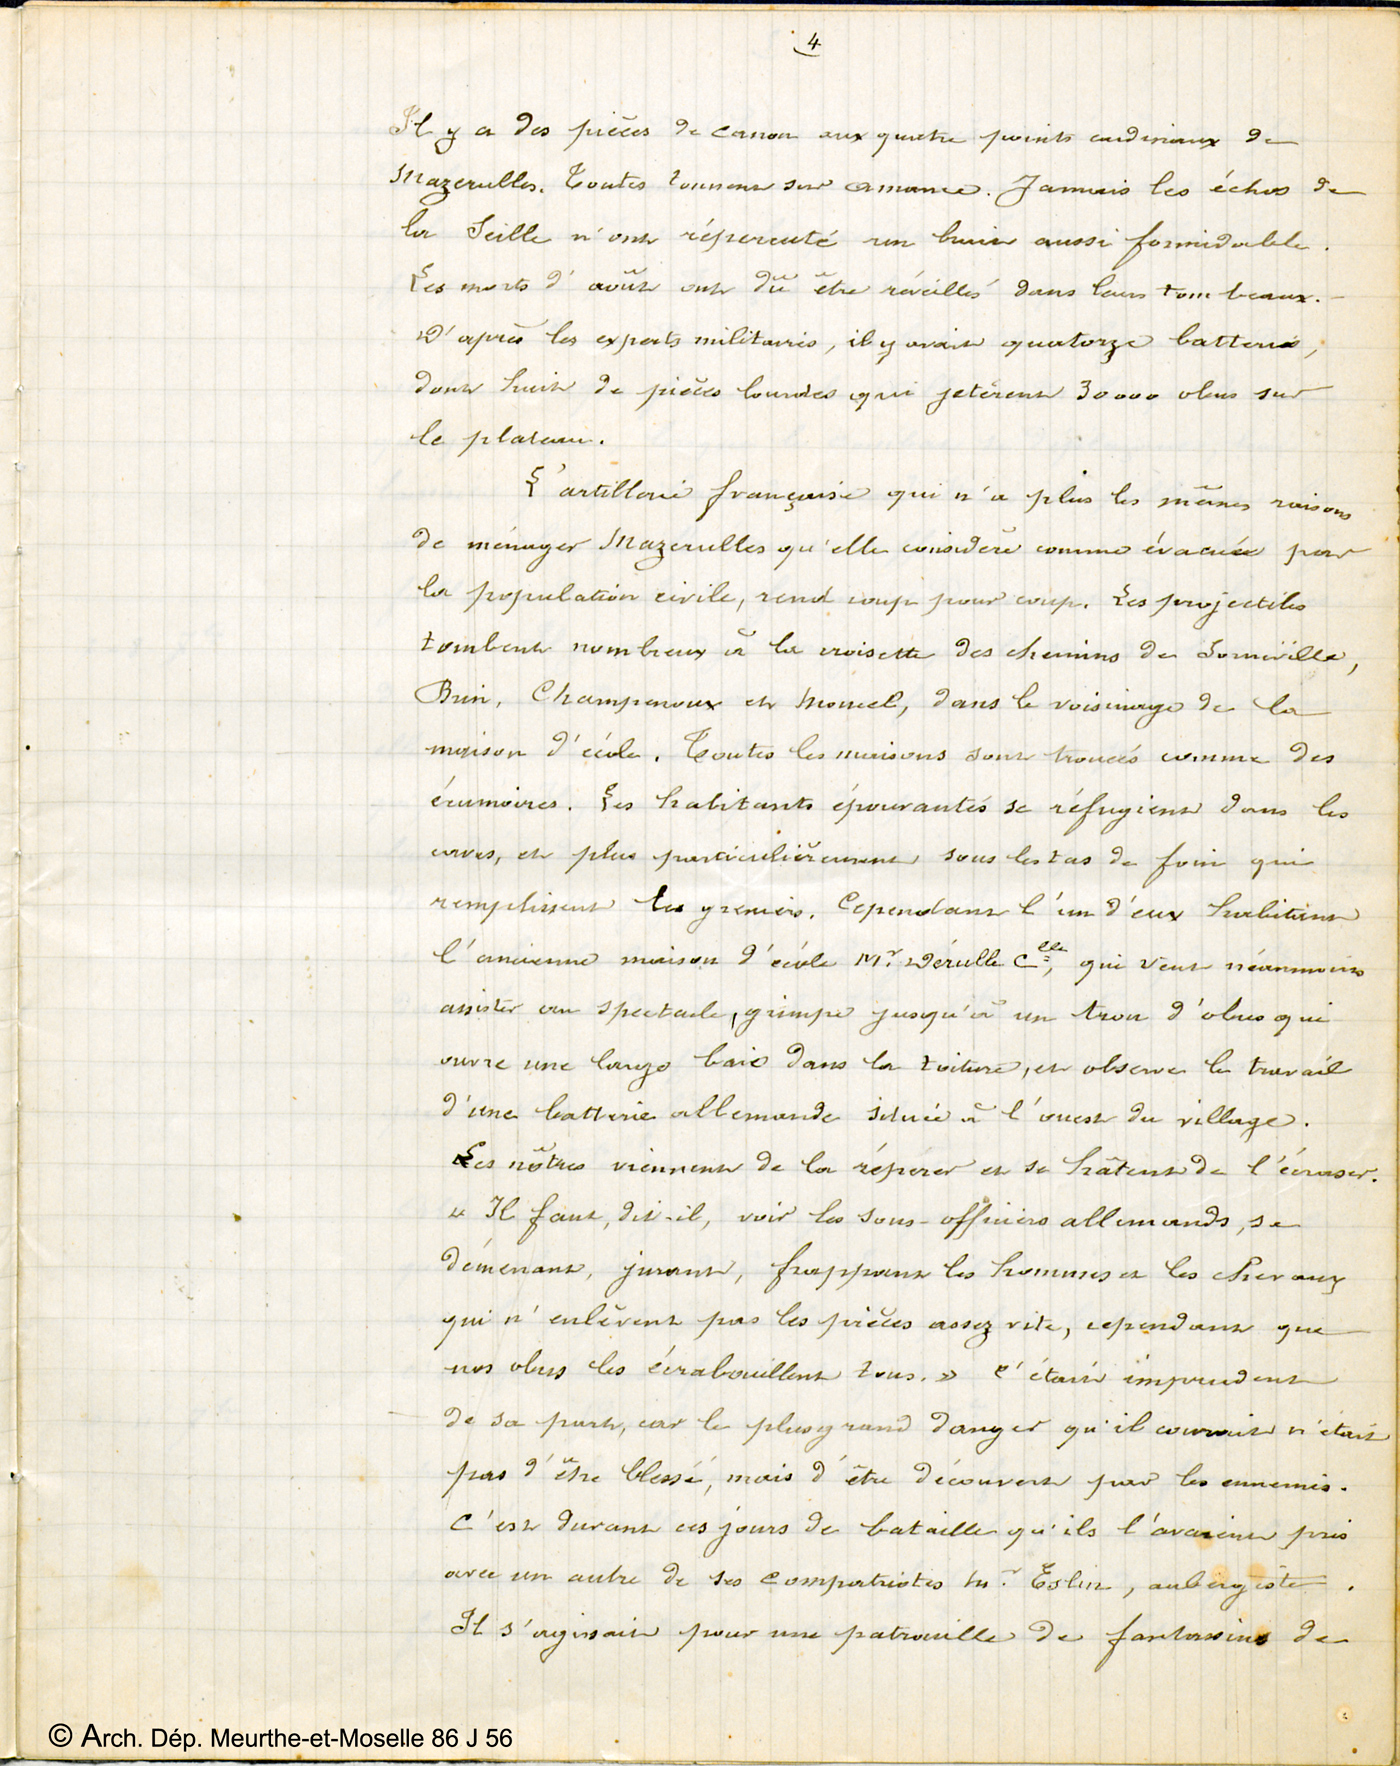 4
Il y a des pièces de canon aux quatre points cardinaux de
Mazerulles. Toutes tonnent sur Amance. Jamais les échos de
la Seille n'ont répercuté un bruit aussi formidable.
Les morts d'août ont dû être réveillés dans leurs tombeaux.
D'après les experts militaires, il y avait quatorze batteries,
dont huit de pièces lourdes qui jetèrent 30000 obus sur
le plateau.
L'artillerie française qui n'a plus les mêmes raisons
de ménager Mazerulles qu'elle considère comme évacuée par
la population civile, rend coup pour coup. Les projectiles
tombent nombreux à la croisette des chemins de Sornéville,
Brin, Champenoux et Moncel, dans le voisinage de la
maison d'école. Toutes les maisons sont trouées comme des
écumoires. Les habitants épouvantés se réfugient dans les
caves, et plus particulièrement sous les tas de foin qui
remplissent les greniers. Cependant l'un d'eux habitant
l'ancienne maison d'école Mr. Dérulle Clle, qui veut néanmoins
assister au spectacle, grimpe jusqu'à un trou d'obus qui
ouvre une large baie dans la toiture, et observe le travail
d'une batterie allemande située à l'ouest du village.
Les nôtres viennent de la repérer et se hâtent de l'écraser.
« Il faut, dit-il, voir les sous-officiers allemands, se
démenant, jurant, frappant les hommes et les chevaux
qui n'enlèvent pas les pièces assez vite, cependant que
nos obus les écrabouillent tous. » C'était imprudent
de sa part, car le plus grand danger qu'il courrait n'était
pas d'être blessé, mais d'être découvert par les ennemis.
C'est durant ces jours de bataille qu'ils l'avaient pris
avec un autre de ses compatriotes Mr. Eslin, aubergiste.
Il s'agissait pour une patrouille de fantassins de
© Arch. Dép. Meurthe-et-Moselle 86 J 56